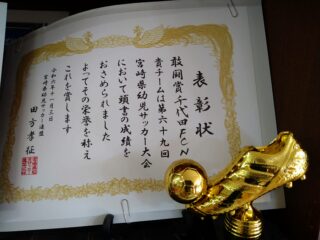 表彰状
敢闘賞千代田FCN
貴チームは第六十九回
宮崎県幼児サッカー大会
において頭書の成績を
おさめられました
よってその栄誉を称え
これを賞します
令和六年十一月三日
宮崎県幼児サッカー連盟
田方孝征